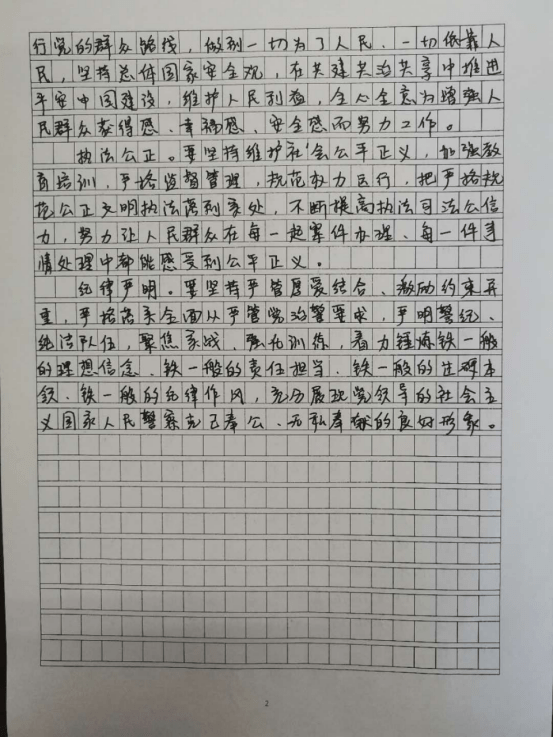 行党的群众路线，做到一切为了人民、一切依靠人
民，坚持总体国家安全观，在共建共治共享中推进
平安中国建设，维护人民利益，全心全意为增强人
民群众获得感、幸福感、安全感而努力工作。
执法公正。要坚持维护社会公平正义，加强教
育培训，严格监督管理，规范权力运行，把严格规
范公正文明执法落到实处，不断提高执法司法公信
力，努力让人民群众在每一起案件办理、每一件事
情处理中都能感受到公平正义。
纪律严明。要坚持严管厚爱结合、激励约束并
重，严格落实全面从严管党治警要求，严明警纪、
纯洁队伍，聚焦实战、强化训练，着力锤炼铁一般
的理想信念、铁一般的责任担当、铁一般的过硬本
领、铁一般的纪律作风，充分展现党领导的社会主
义国家人民警察克己奉公、无私奉献的良好形象。
2